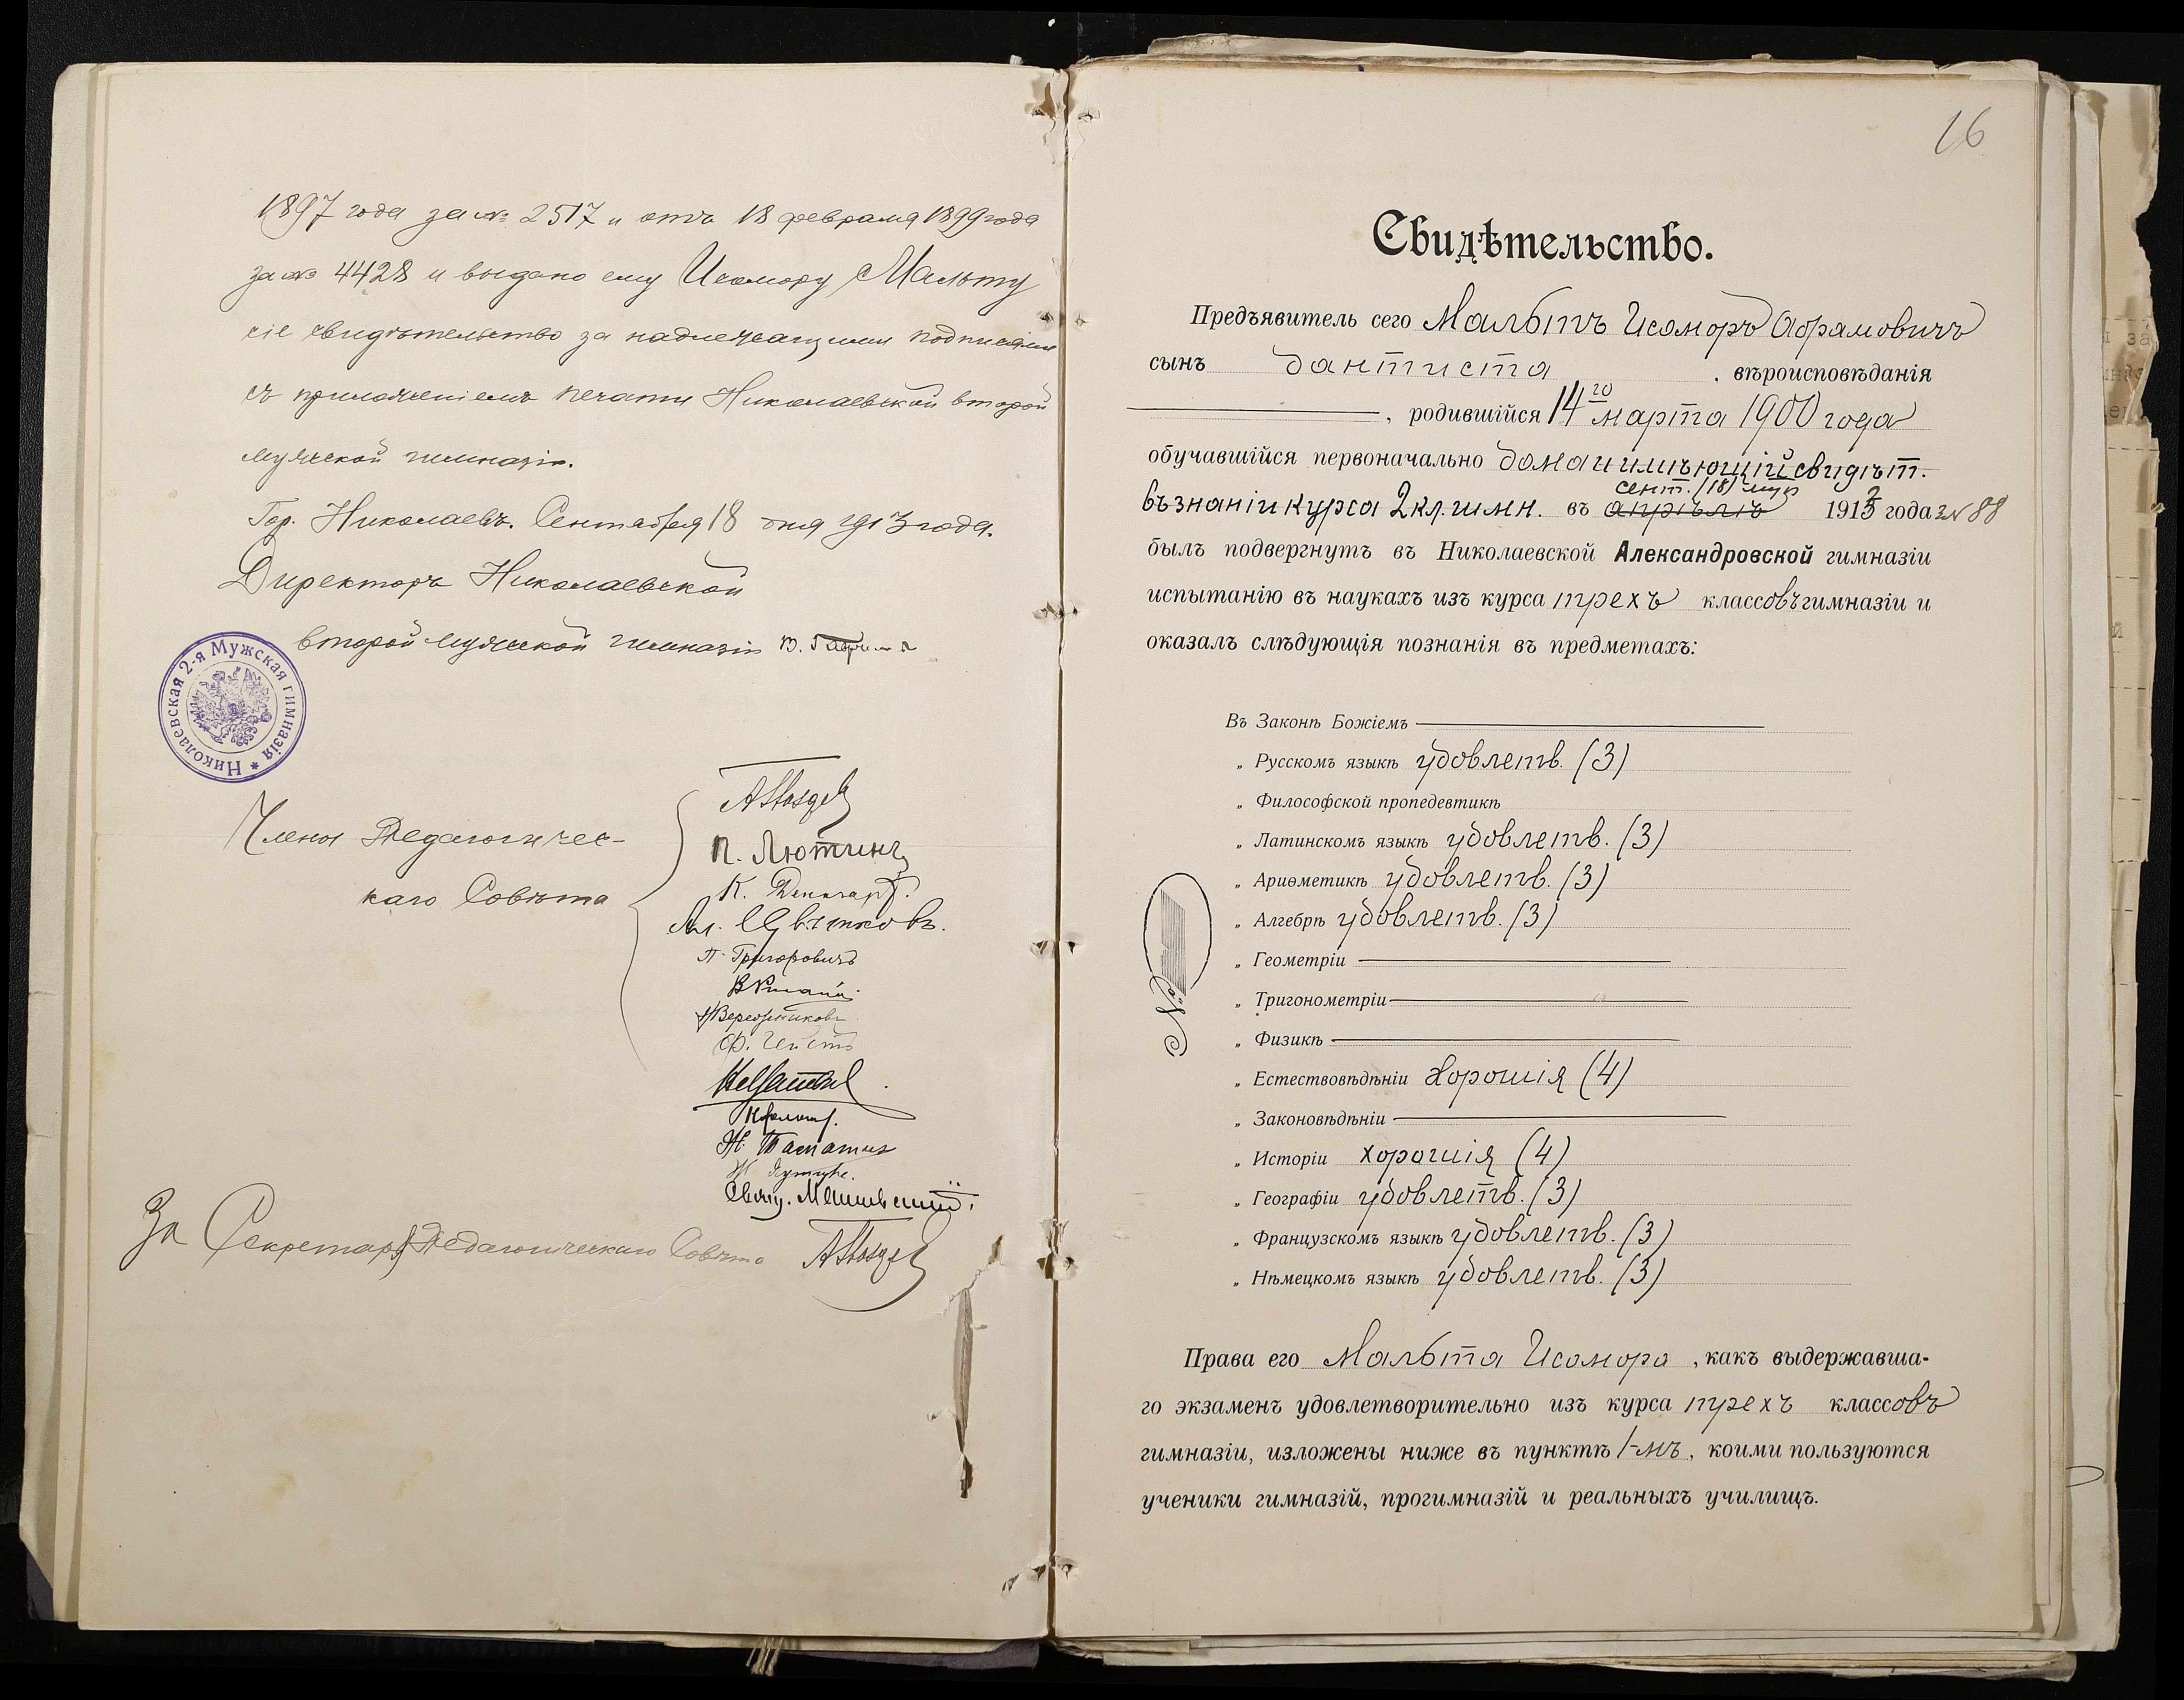 1897 года за № 2517 и отъ 18 февраля 1899 года
за № 4428 и выдано ему Исамору Мальту
сіе свидѣтельство за надлежащими подписями
съ приложеніемъ печати Николаевской второй
мужской гимназіи.
Гор. Николаевъ. Сентября 18 дня 1913 года.
Директоръ Николаевской
второй мужской гимназіи В.
Николаевская 2-я Мужская гимназія *
Члены Педагогичес-
каго Совѣта
П. Лютинъ
К.
Ал. Цвѣтковъ.
П. Григоровичъ
Ф.
Н.
Свящ.
За Секретаря Педагогическаго Совѣта
16
Свидѣтельство.
Предъявитель сего Мальтъ Исаморъ Абрамовичъ
сынъ дантиста . вѣроисповѣданія
, родившійся 14го марта 1900 года
обучавшійся первоначально дома и имѣющій свидѣт.
сент. (18)
въ знаніи курса 2 кл. гимн. въ апрѣлѣ 1913 года за № 88
былъ подвергнутъ въ Николаевской Александровской гимназіи
испытанію въ наукахъ изъ курса трехъ классовъ гимназіи и
оказалъ слѣдующія познанія въ предметахъ:
Въ Законѣ Божіемъ
„ Русскомъ языкѣ удовлетв. (3)
„ Философской пропедевтикѣ
„ Латинскомъ языкѣ удовлетв. (3)
„ Ариѳметикѣ удовлетв. (3)
„ Алгебрѣ удовлетв. (3)
„ Геометріи
„ Тригонометріи
„ Физикѣ
„ Естествовѣдѣніи Хорошія (4)
„ Законовѣдѣніи
„ Исторіи хорошія (4)
„ Географіи удовлетв. (3)
„ Французскомъ языкѣ удовлетв. (3)
„ Нѣмецкомъ языкѣ удовлетв. (3)
№
Права его Мальта Исамора , какъ выдержавша-
го экзаменъ удовлетворительно изъ курса трехъ классовъ
гимназіи, изложены ниже въ пунктѣ 1-мъ, коими пользуются
ученики гимназій, прогимназій и реальныхъ училищъ.